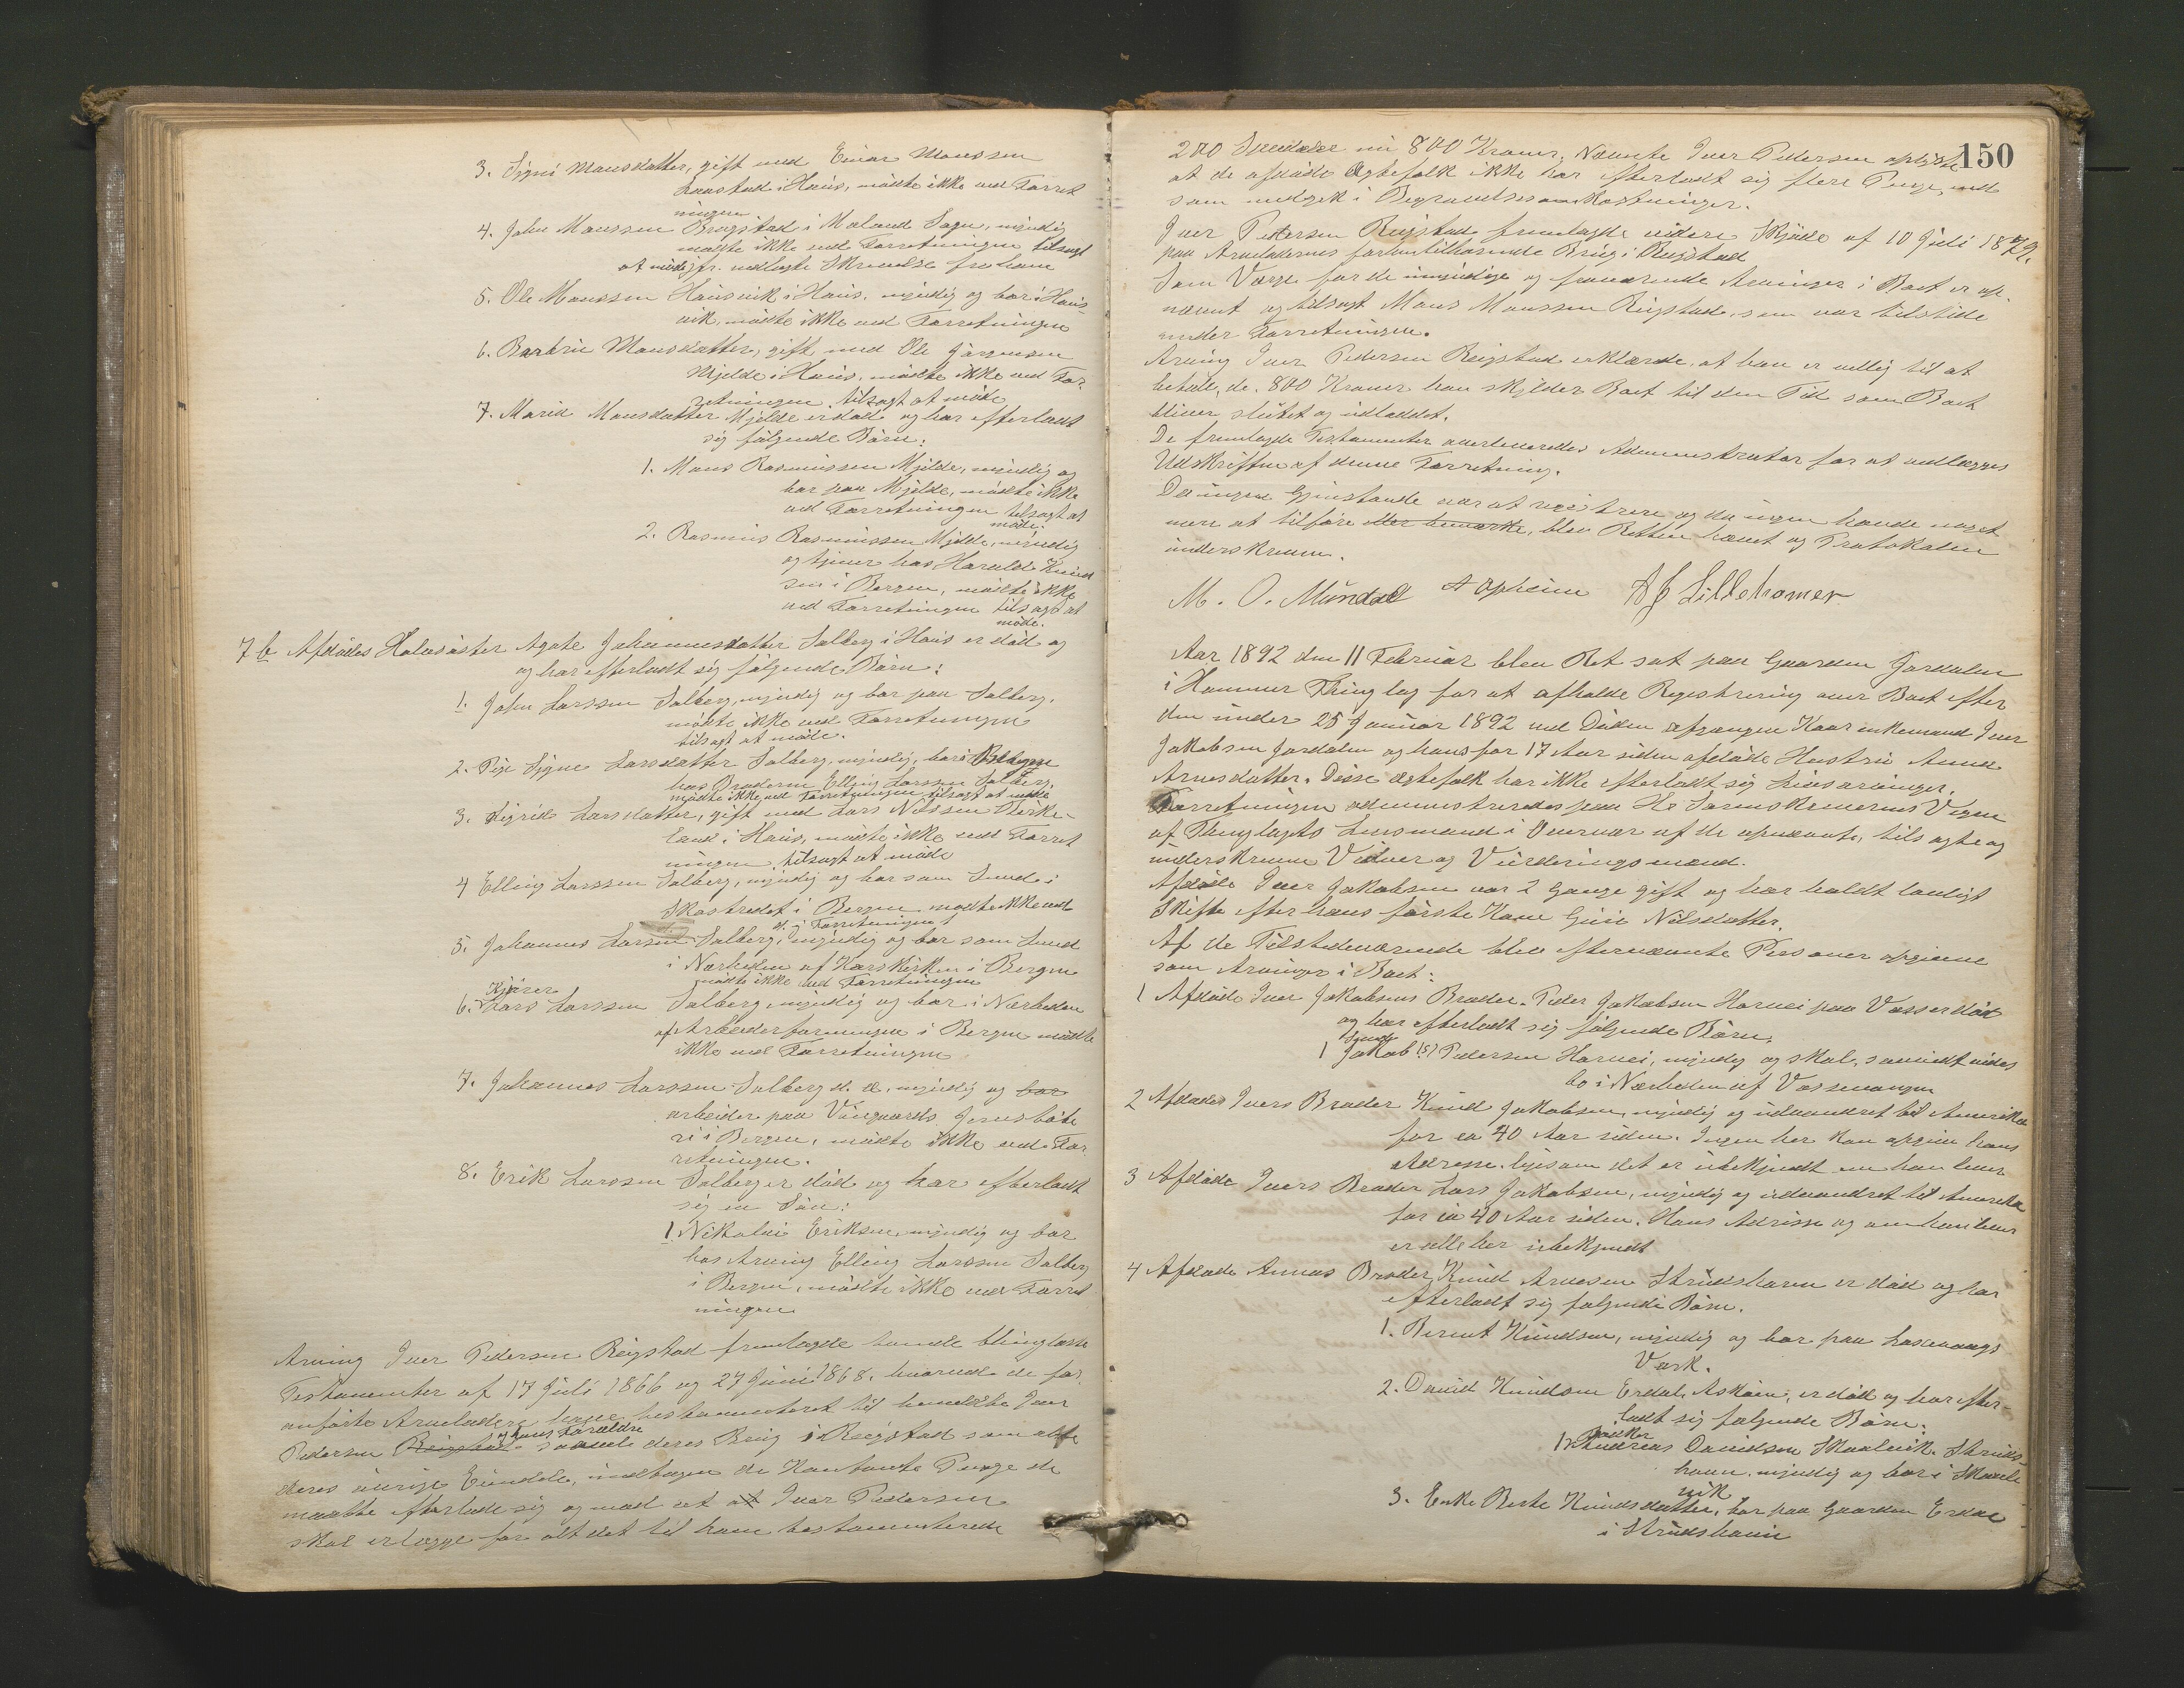 3. Signi Mansdatter, gift med Einar Monssen
Haustad i Haus, mødte ikke ved Forret
ningen
4. John Monssen Brogstad i Moland Sogn, myndig
mødte ikke ved Forretningen tilsagt
at møde jfr. vedlagte Skrivelse fra ham
5. Ole Monssen Hausvik i Haus, myndig og bor i Haus
vik, mødte ikke ved Forretningen
6. Barbrū Mansdatter, gift med Ole Jørgensen
Mjelde i Haus, mødte ikke ved For
retningen tilsagt at møde
7. Marie Mansdatter Mjelde er død og har efterladt
sig følgende Børn:
1. Mons Rasmussen Mjelde, myndig og
bor paa Mjelde, mødte ikke
ved Forretningen tilsagt at
møde.
2. Rasmus Rasmussen Mjelde, myndig
og tjener hos Harald Knud
sen i Bergen, mødte ikke
ved Forretningen tilsagt at
møde.
7 b Afdødes Halvsøster Agate Johannesdatter Solberg i Haus er død og
og har efterladt sig følgende Børn:
1. John Larssen Solberg, myndig og bor paa Solberg,
mødte ikke ved Forretningen
tilsagt at møde.
2. Pige Signe Larsdatter Solberg, myndig, bor i Bergen
hos Broderen Elling Larssen Solberg,
mødte ikke ved Forretningen tilsagt at møde
3. Sigrid Larsdatter, gift med Lars Nilssen
land i Haus, mødte ikke ved Forret
ningen, tilsagt at møde
4 Elling Larssen Solberg, myndig og bor som Smed i
Skostredet i Bergen mødte ikke ved
Forretningen
5. Johannes Larssen Solberg, d. y. myndig og bor som Smed
i Nærheden af Korskirken i Bergen
mødte ikke ved Forretningen
Kjører
6. Lars Larssen Solberg, myndig og bor i Nærheden
af Arbeiderforeningen i Bergen mødte
ikke ved Forretningen
7. Johannes Larssen Solberg d. æ. myndig og bor
arbeider paa Jernstøbe
ri i Bergen, mødte ikke ved For
retningen.
8. Erik Larssen Solberg er død og har efterladt
sig en Søn:
1. Nikolai Eriksen, myndig og bor
hos Arving Elling Larssen Solberg
i Bergen, mødte ikke ved Forret
ningen
Arving Iver Pedersen Reigstad fremlagde tvende thinglæste
Testamenter af 17 Juli 1866 og 27 Juni 1868, hvorved de for
anførte Arveladere have testamenteret til bemeldte Iver
og hans Forældre
Pedersen Reigstad saavel deres Brug i Reigstad som alle
deres øvrige Eiendele, indtagen de Kontante Penge de
maatte efterlade sig og mod at at Iver Pedersen
skal erlægge for alt det til ham testamenterede
150
200 Speciedaler nu 800 Kroner. Nævnte Iver Pedersen oplyste
at de afdøde Ægtefolk ikke har efterladt sig flere Penge, end
som medgik i Begravelsesomkostninger.
Iver Pedersen Reigstad fremlagde videre Skjøde af 10 Juli 1879.
paa Arveladernes forhen tilhørende Brug i Reigstad
Som Værge for de umyndige og fraværende Arvinger i Boet er op
nævnt og tilsagt Mons Monssen Reigstad, som var tilstede
under Forretningen.
Arving Iver Pedersen Reigstad erklærede, at han er villig til at
betale, de 800 Kroner han skylder Boet til den Tid som Boet
bliver sluttet og udloddet.
De fremlagde Testamenter overleveredes Administrator for at vedlægges
Udskriften af denne Forretning.
Da ingen Gjenstande var at registrere og da ingen havde noget
mere at tilføre eller bemærke, blev Retten hævet og Protokolen
underskreven.
M. O. Mundal A Opheim A J Lillehamer
Aar 1892 den 11 Februar blev Ret sat paa Gaarden Jordalen
i Hammer Thinglag for at afholde Registrering over Boet efter
den under 25 Januar 1892 ved Døden afgangne Kaarenkemand Iver
Jakobsen Jordalen og hans for 17 Aar siden afdøde Hustru Anna
Arnesdatter. Disse Ægtefolk har ikke efterladt sig Livsarvinger.
Forretningen administreredes paa Hr Sorenskriverens Vegne
af Thinglagets Lensmand i Overvær af de opnævnte, tilsagte og
underskrevne Vidner og Vurderingsmænd.
Afdøde Iver Jakobsen var 2 Gange gift og har holdt lovligt
Skifte efter hans første Kone Guri Nilsdatter.
Af de Tilstedeværende blev efternævnte Personer opgivne
som Arvinger i Boet:
1 Afdøde Iver Jakobsens Broder. Peder Jakobsen Hornei paa Voss er død
og har efterladt sig følgende Børn.
1 Jakob (?) Pedersen Hornei, myndig og skal, saavidt vides
bo i Nærheden af Vossevangen
2 Afdøde Ivers Broder Knud Jakobsen, myndig og udvandret til Amerika
for ca 40 Aar siden. Ingen her kan opgive hans
Adresse, ligesom det er ubekjendt om han lever
3 Afdøde Ivers Broder Lars Jakobsen, myndig og udvandret til Amerika
for ca 40 Aar siden. Hans Adresse og om han lever
er alle her ubekjendt
4 Afdøde Annas Broder Knud Arnesen Strudshavn er død og har
efterladt sig følgende Børn.
1. Bernt Knudsen, myndig og bor paa Laxevaags
Værk.
2. David Knudsen Erdal, Askøen, er død og har efter-
ladt sig følgende Børn:
1. Andreas Davidsen Skaalvik. Struds-
havn, myndig og bor i Skaal
vik
3. Enke Berte Knudsdatter, bor paa Gaarden Erdal
i Strudshavn